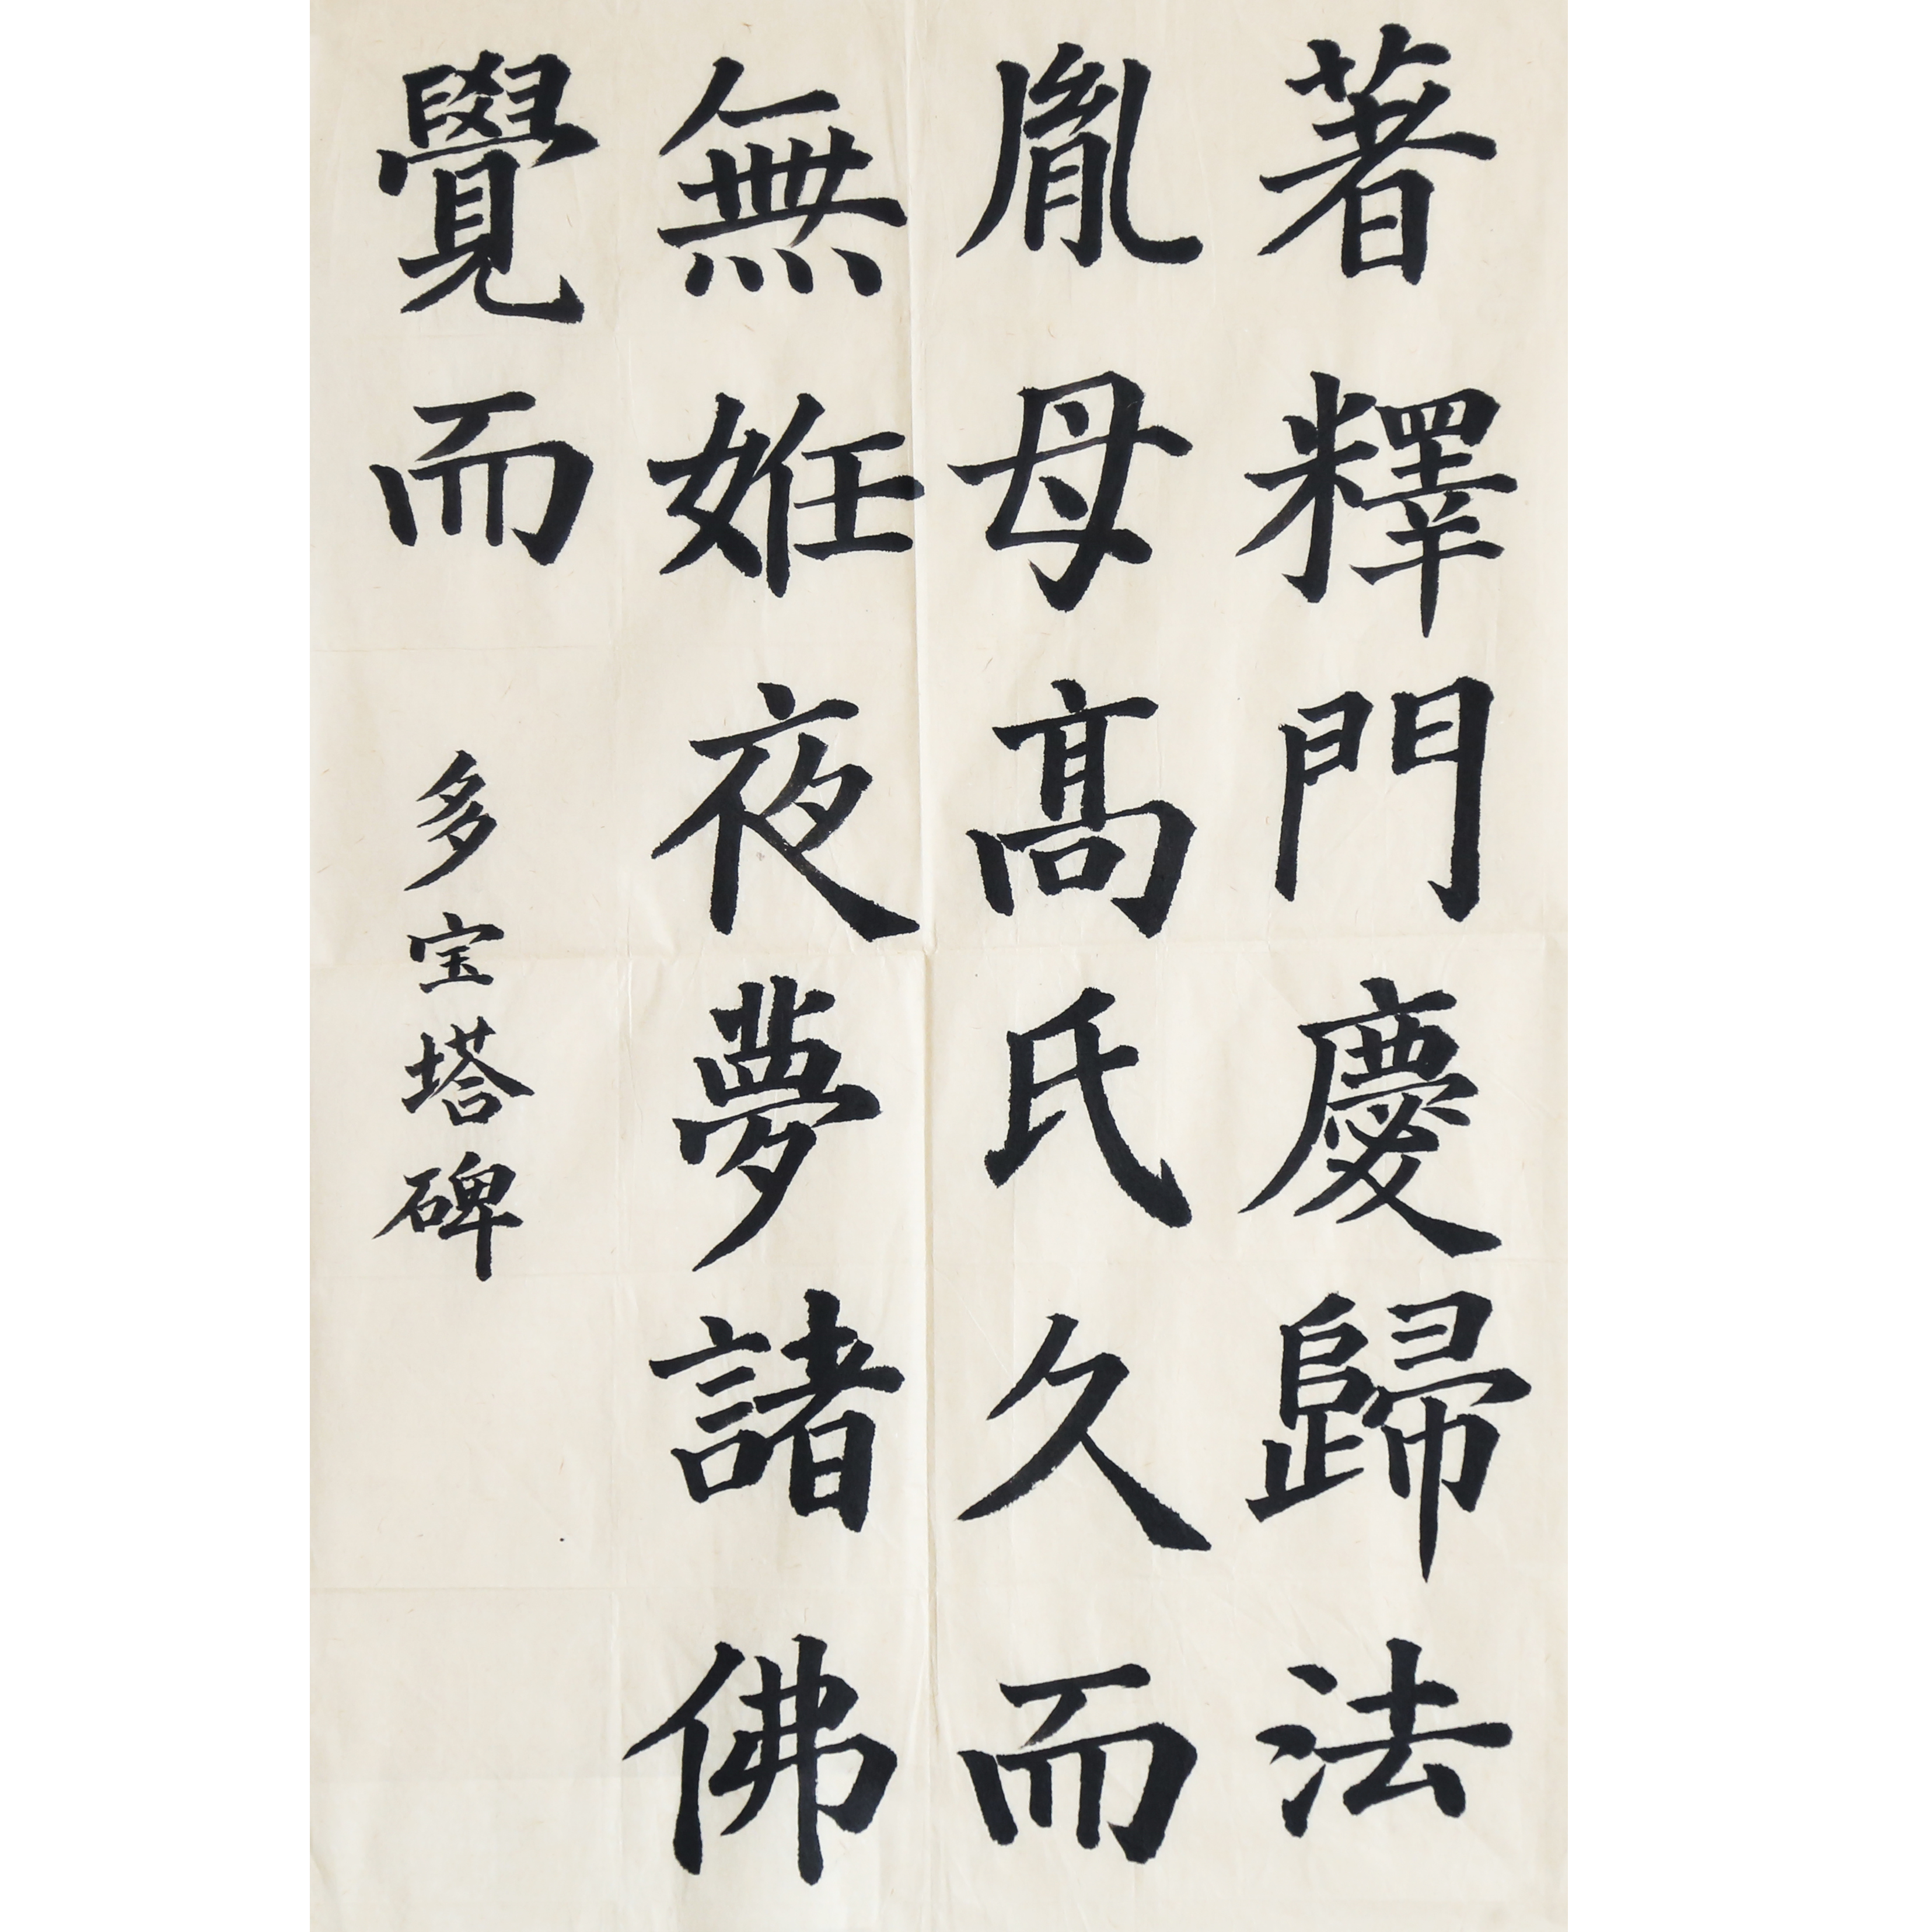 著釋門慶歸法
胤母高氏久而
無姙夜夢諸佛
覺而
多宝塔碑